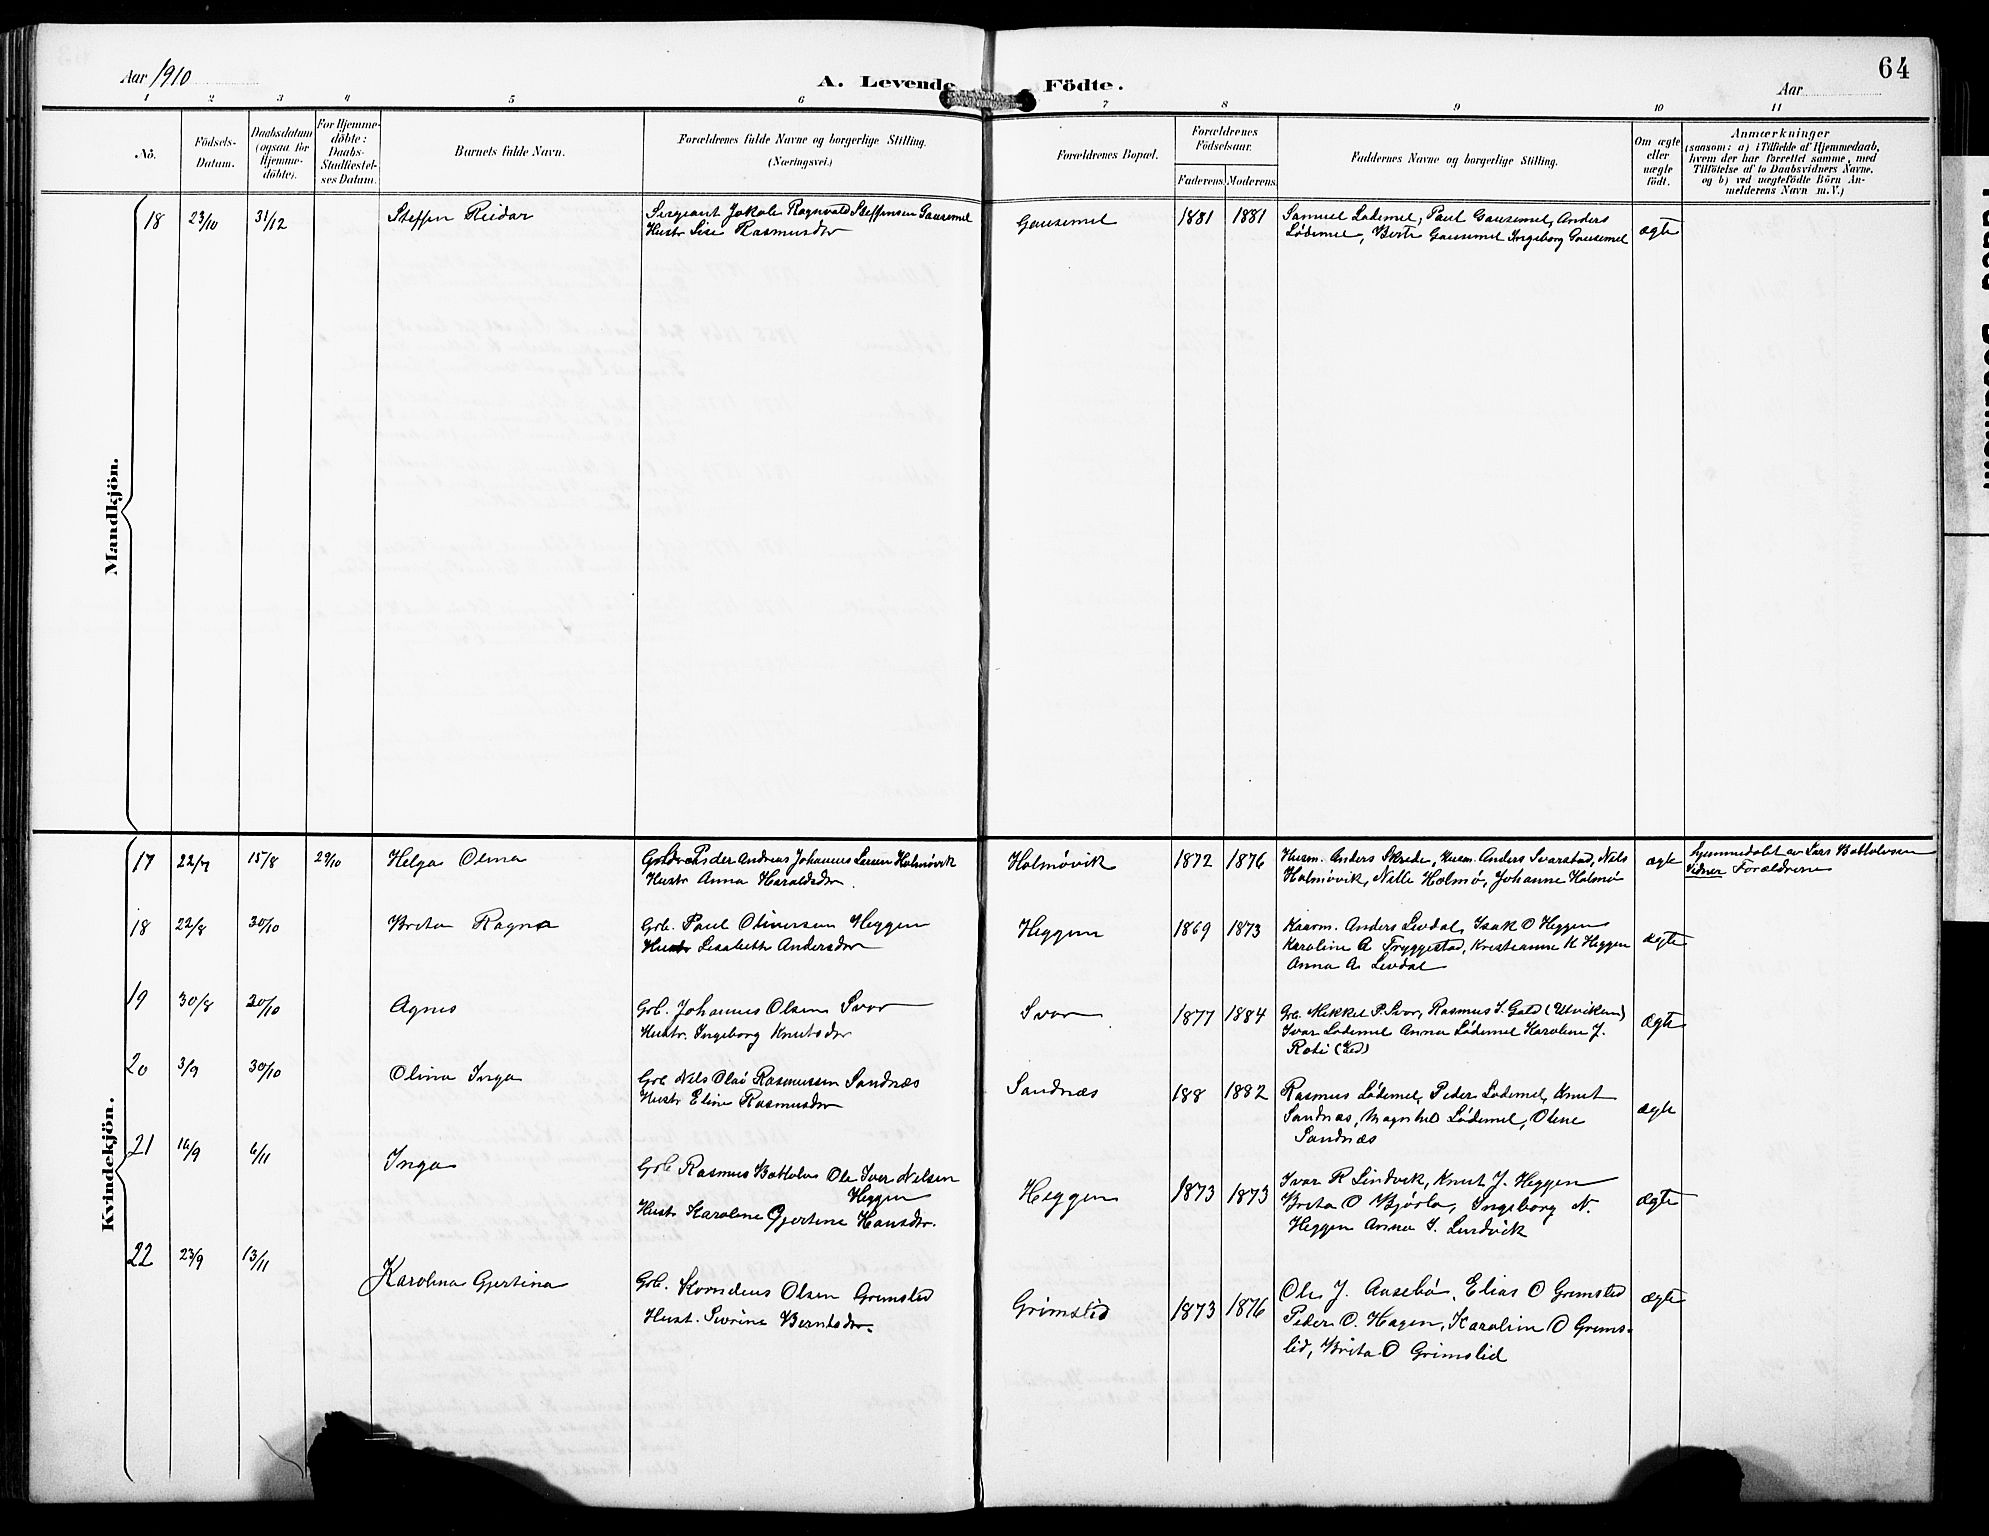 Aar 1910
A. Levende Födte.
Aar
64
1 2 3 4 5 6 7 8 9 10 11
No.
Födsels-
Datum.
Daabsdatum
(ogsaa for
Hjemme-
döbte).
For Hjemme-
döbte:
Daabs-
Stadfæstel-
ses Datum.
Barnets fulde Navn.
Forældrenes fulde Navne og borgerlige Stilling.
(Næringsvei.)
Forældrenes Bopæl.
Forældrenes
Födselsaar.
Faderens. Moderens.
Faddernes Navne og borgerlige Stilling.
Om ægte
eller
uægte
födt.
Anmærkninger
(saasom: a) i Tilfælde af Hjemmedaab,
hvem der har forrettet samme, med
Tilföielse af to Daabsvidners Navne,
og b) ved uægtefödte Börn An-
melderens Navn m. V.)
Mandkjön.
18 23/10 31/12 Steffen Reidar
Sergeant Jakob Ragnvald Steffensen Gausemel
Hustr Lise Rasmusdtr
Gausemel 1881 1881
Samuel Lødemel, Paul Gausemel, Anders
Lødemel, Berte Gausemel Ingeborg Gausemel
ægte
Kvindekjön.
17 22/7 15/8 29/10 Helga Olina
Peder Andreas Johannes Larsen Holmøvik
Hustr Anna Haraldsdtr.
Holmøvik 1872 1876
Husm. Anders Skrede, Husm. Anders Svarstad, Nils
Holmøvik, Nille Holmø, Johanne Holmø
ægte
hjemmedøbt av Lars Bottolvsen
Vidner Forældrene
18 22/8 30/10 Brita Ragna
Grb. Paul Oliversen Heggen
Hustr Lisabeth Andersdtr
Heggen 1869 1873
Kaarm. Anders Levdal, Isak O Heggen
Karoline A Tryggestad, Kristianne K Heggen
Anna A. Levdal
ægte
19 30/8 30/10 Agnes
Grb. Johannes Olsen Svor
Hustr. Ingeborg Knutsdtr
Svor 1877 1884
Grb. Mikkel P. Svor, Rasmus I. Gald (Utviken)
Ivar Lødemel Anna Lødemel Karolene J.
Roti (Eid)
ægte
20 3/9 30/10 Olina Inga
Grb Nils Olai Rasmussen Sandnæs
Hustr Eline Rasmusdtr
Sandnæs 188 1882
Rasmus Lødemel, Peder Lødemel, Knut
Sandnæs, Magnhild Lødemel, Oline
Sandnæs
ægte
21 16/9 6/11 Inga
Grb Rasmus Bottolv Ole Iver Nilsen
Heggen
Hustr Karoline Gjertine Hansdtr.
Heggen 1873 1873
Ivar R Lindvik, Knut J. Heggen
Brita O Bjørlo, Ingeborg N.
Heggen Anna I. Lindvik
ægte
22 23/9 13/11 Karolina Gjertina
Grb. Olsen Grimslid
Hust. Sivrine Berntsdtr.
Grimslid 1873 1876
Ole J. Aasebø, Elias O Grimslid
Peder O. Hagen, Karoline O Grims-
lid, Brita O Grimslid
ægte